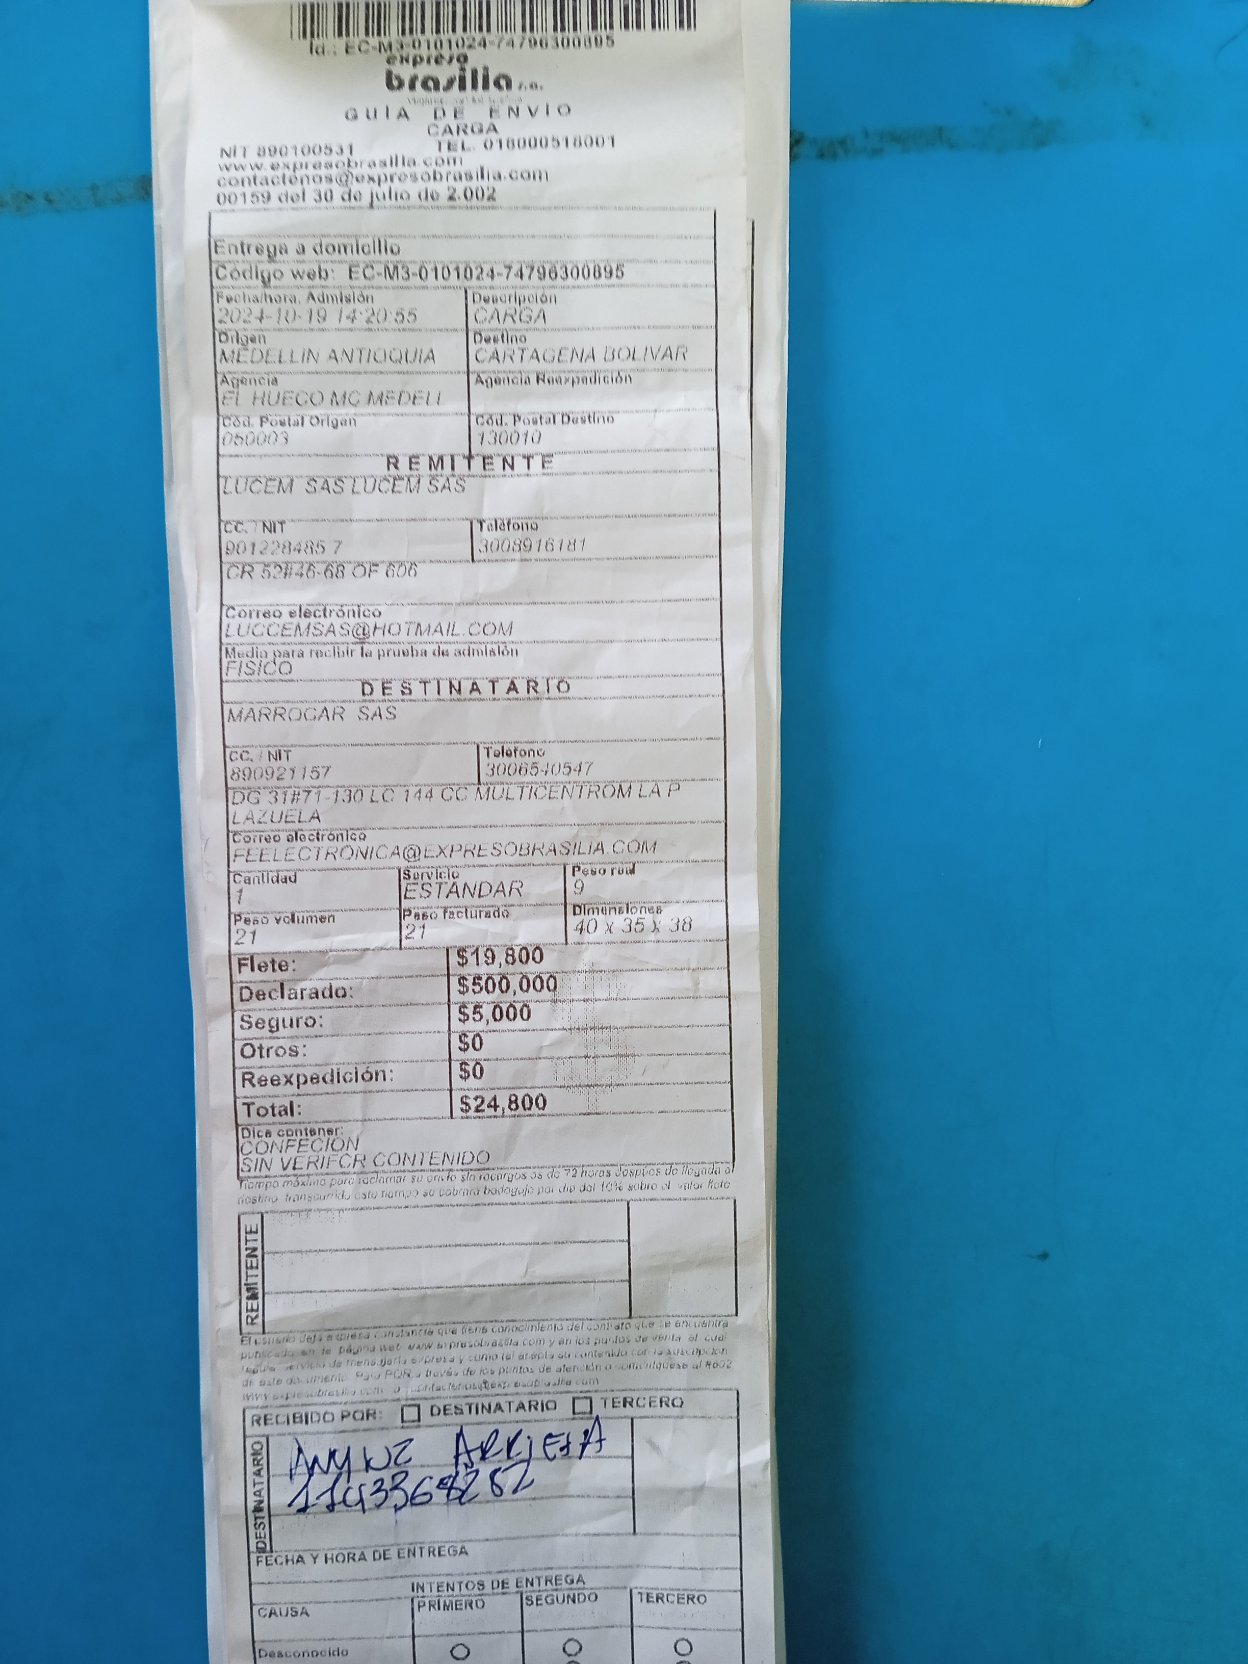 Id.: EC-M3-0101024-74796300895
expreso
brasilia s.a.
GUIA DE ENVIO
CARGA
NIT 890100531 TEL. 018000518001
www.expresobrasilia.com
contactenos@expresobrasilia.com
00159 del 30 de julio de 2.002
Entrega a domicilio
Código web: EC-M3-0101024-74796300895
Fecha/hora. Admisión Descripción
2024-10-19 14:20:55 CARGA
Origen Destino
MEDELLIN ANTIOQUIA CARTAGENA BOLIVAR
Agencia Agencia Reexpedición
EL HUECO MC MEDELL
Cód. Postal Origen Cód. Postal Destino
050003 130010
REMITENTE
LUCEM SAS LUCEM SAS
CC. / NIT Teléfono
901228485 7 3008916181
CR 52#46-68 OF 606
Correo electrónico
LUCCEMSAS@HOTMAIL.COM
Medio para recibir la prueba de admisión
FISICO
DESTINATARIO
MARROCAR SAS
CC. / NIT Teléfono
890921157 3006540547
DG 31#71-130 LC 144 CC MULTICENTROM LA P
LAZUELA
Correo electrónico
FEELECTRONICA@EXPRESOBRASILIA.COM
Cantidad Servicio Peso real
1 ESTANDAR 9
Peso volumen Peso facturado Dimensiones
21 21 40 x 35 x 38
Flete: $19,800
Declarado: $500,000
Seguro: $5,000
Otros: $0
Reexpedición: $0
Total: $24,800
Dice contener:
CONFECION
SIN VERIFCR CONTENIDO
Tiempo máximo para reclamar su envío sin recargos es de 72 horas después de llegada a
destino, transcurrido este tiempo se cobrará bodegaje por día del 10% sobre el valor flete
REMITENTE
El usuario deja expresa constancia que tiene conocimiento del contrato que se encuentra
publicado en la página web www.expresobrasilia.com y en los puntos de venta, el cual
regula servicio de mensajería expresa y como tal acepta su contenido con la suscripción
de este documento. Para PQR a través de los puntos de atención o comuníquese al #602
www.expresobrasilia.com o contactenos@expresobrasilia.com
RECIBIDO POR: DESTINATARIO TERCERO
DESTINATARIO
ARRIETA
FECHA Y HORA DE ENTREGA
INTENTOS DE ENTREGA
CAUSA PRIMERO SEGUNDO TERCERO
Desconocido